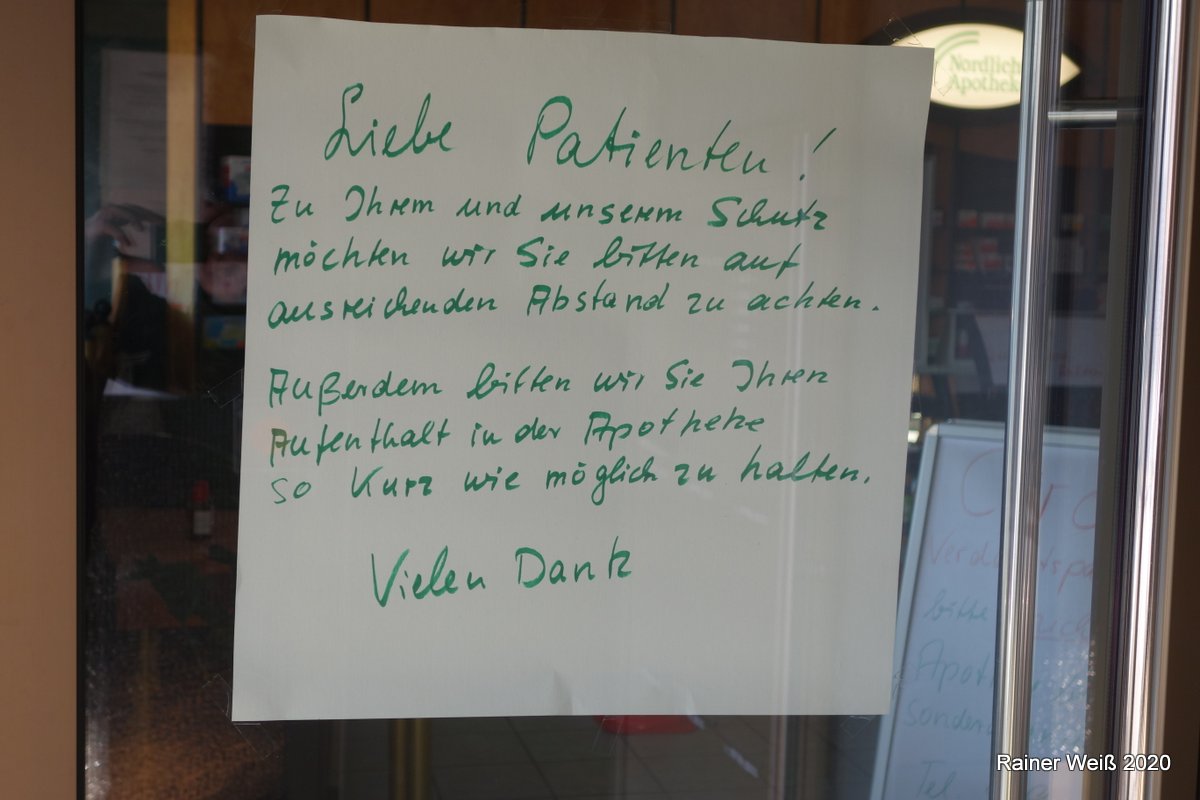 Liebe Patienten!
Zu Ihrem und unserem Schutz
möchten wir Sie bitten auf
ausreichenden Abstand zu achten.
Außerdem bitten wir Sie Ihren
Aufenthalt in der Apotheke
so Kurz wie möglich zu halten.
Vielen Dank
Nordlich
Apothek
bitte
Tel.
Rainer Weiß 2020